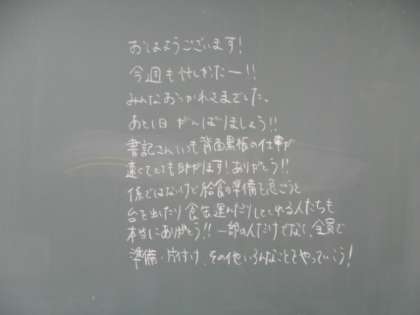 おはようございます!
今週も忙しかったー!!
みんなおつかれさまでした。
あと1日がんばりましょう!!
書記さんいつも背面黒板の仕事が
速くてとても助かります!ありがとう!!
係ではないけど給食の準備も急ごうと
台を出したり食缶運んだりしてくれる人たちも
本当にありがとう!!一部の人だけでなく、全員で
準備・片付け、その他いろんなことをやっていこう!